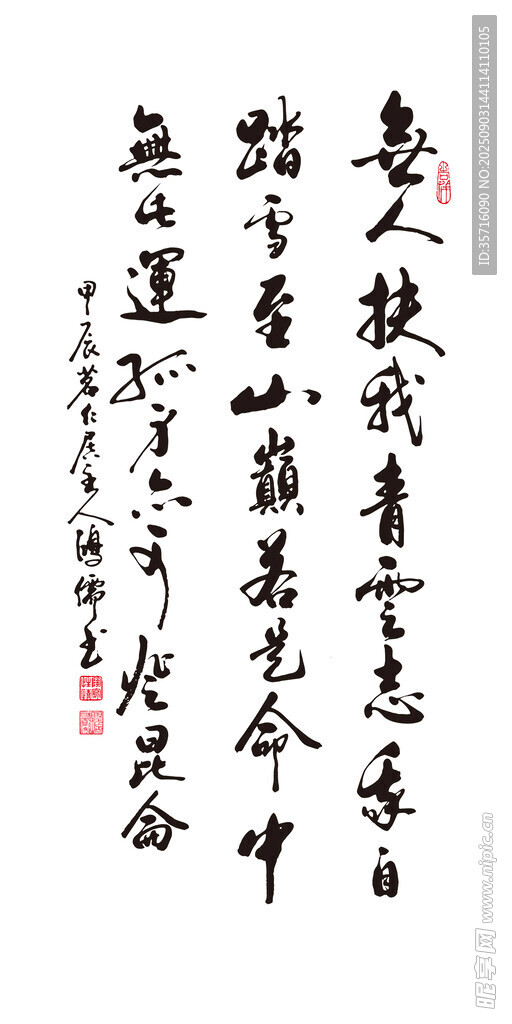 無人扶我青雲志我自
踏雪至山巔若是命中
無此運孤身亦可登昆侖
甲辰茗仁居主人鴻儒書
ID:35716090 NO:20250903144114110105
昵图网 www.nipic.cn